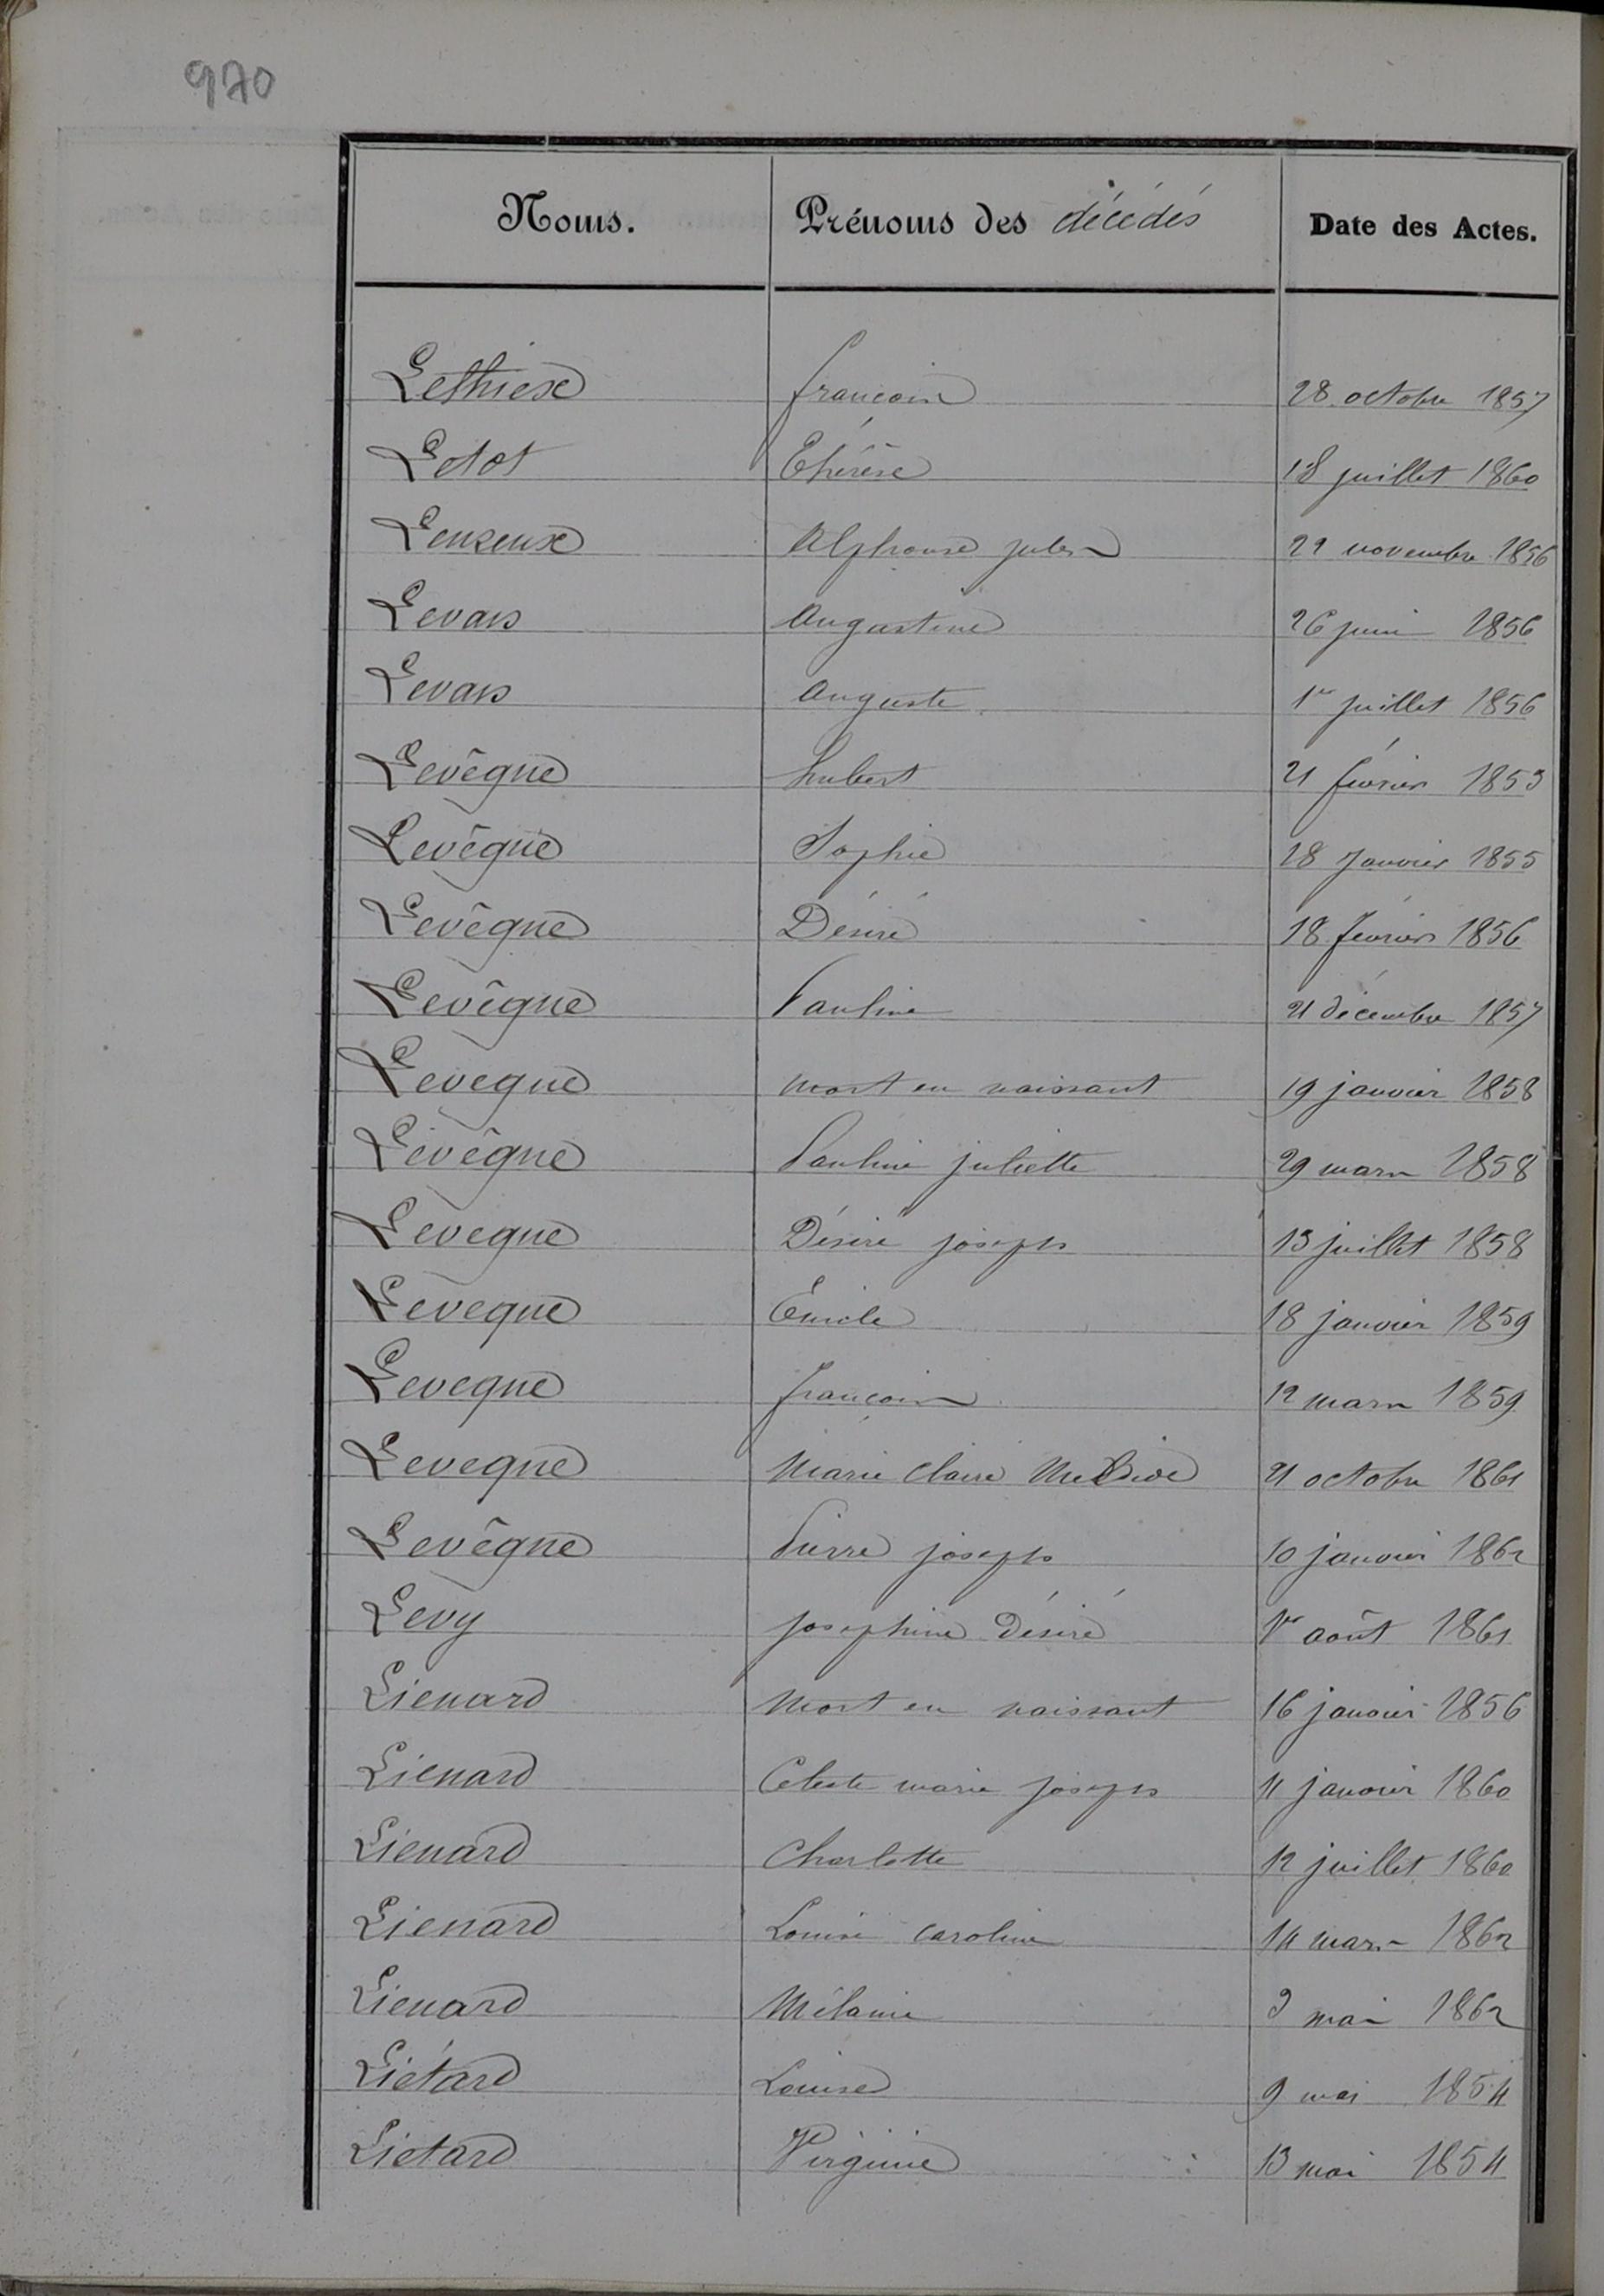 970
Noms. Prénoms des décédés Date des Actes.
Lethiese françois 28 octobre 1857
Letot Thérèse 18 juillet 1860
Leuzeux Alphonse jules 22 novembre 1856
Levais Augustine 26 juin 1856
Levais Auguste 1er juillet 1856
Levêque hubert 21 février 1853
Levêque Sophie 28 Janvier 1855
Levêque Désiré 18 février 1856
Levêque Pauline 21 décembre 1857
Leveque mort en naissant 19 janvier 1858
Levêque Pauline juliette 29 mars 1858
Leveque Désiré joseph 13 juillet 1858
Leveque Émile 18 janvier 1859
Leveque françois 12 mars 1859
Leveque Marie Claire 21 octobre 1861
Levêque Pierre joseph 10 janvier 1862
Levy josephine Désiré 1er août 1861
Lienard Mort en naissant 16 janvier 1856
Lienard Celeste marie joseph 11 janvier 1860
Lienard Charlotte 12 juillet 1860
Lienard Louise caroline 14 mars 1862
Lienard Mélanie 9 mai 1862
Liétard Louise 9 mai 1854
Lietard Virginie 13 mai 1854